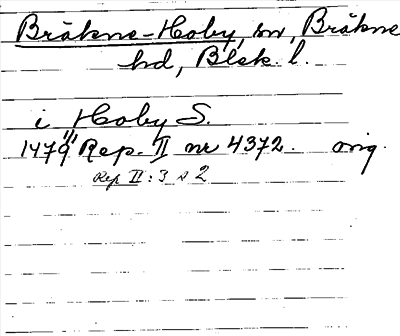 Bräkne-Hoby, sn, Bräkne
hd, Blek. l.
i Hoby S.
1479 11/1 Rep. II nr 4372. orig.
Rep II : 3 s 2